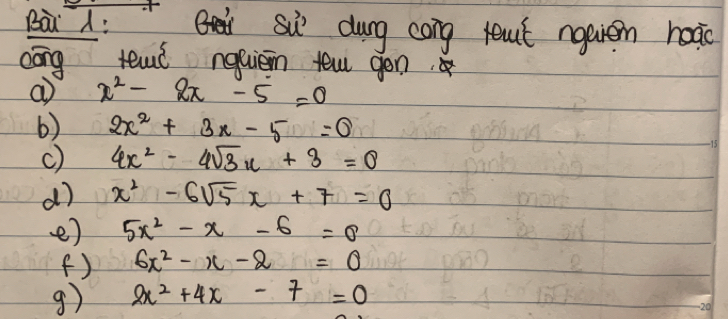 Bài 1: sử dụng công thức nghiệm hoặc
công thức nghiệm thu gọn
a) x² - 2x - 5 = 0
b) 2x² + 3x - 5 = 0
c) 4x² - 4√3x + 3 = 0
d) x² - 6√5 x + 7 = 0
e) 5x² - x - 6 = 0
f) 6x² - x - 2 = 0
g) 2x² + 4x - 7 = 0
15
20